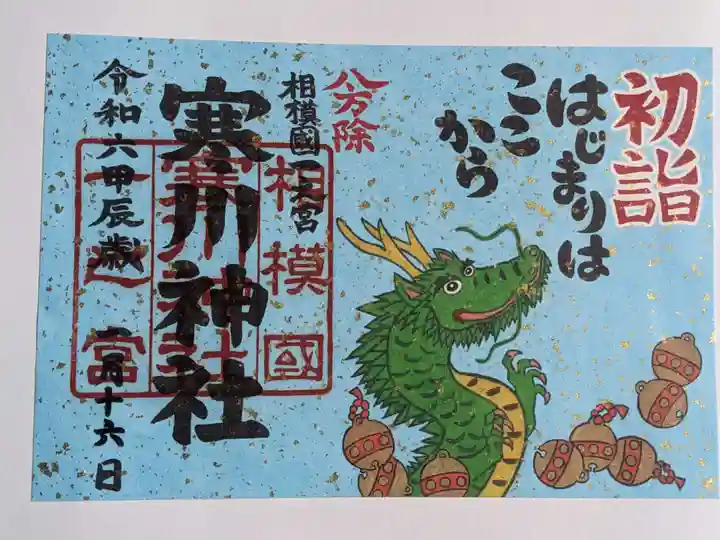 初詣
はじまりは
ここ
から
八方除
相模國一之宮
寒川神社
相模國
寒川神社
一之宮
令和六甲辰歳
一月十六日